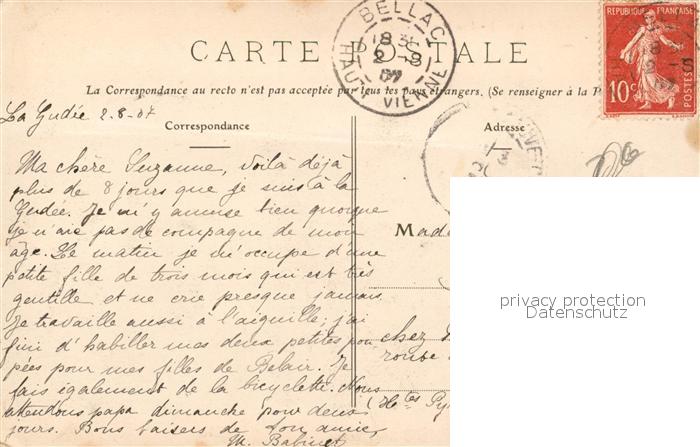 CARTE POSTALE
BELLAC
18 30
2 -8
07
HAUTE VIENNE
REPUBLIQUE FRANÇAISE
10c
POSTES
La Correspondance au recto n'est pas acceptée par tous les pays étrangers. (Se renseigner à la P
La Gudée 2-8-07
Correspondance
Adresse
Ma chère Suzanne, voilà déjà
plus de 8 jours que je suis à la
Gudée. Je m'y amuse bien quoique
je n'aie pas de compagne de mon
âge. Le matin je m'occupe d'une
petite fille de trois mois qui est très
gentille et ne crie presque jamais.
Je travaille aussi à l'aiguille; j'ai
fini d'habiller mes deux petites pou
pées pour mes filles de Belair. Je
fais également de la bicyclette. Nous
attendons papa dimanche pour deux
jours. Bons baisers de ton amie,
M. Babinet
Made
chez
route
(Htes Py
privacy protection
Datenschutz